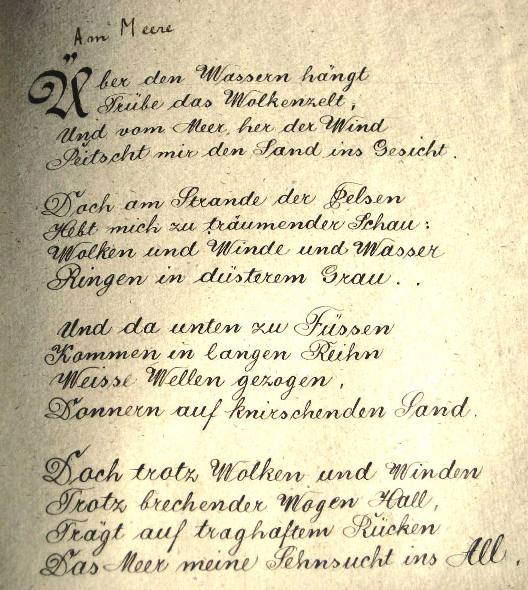 Am Meere
Über den Wassern hängt
Trübe das Wolkenzelt,
Und vom Meer her der Wind
Peitscht mir den Sand ins Gesicht.
Doch am Strande der Felsen
Hebt mich zu träumender Schau:
Wolken und Winde und Wasser
Ringen in düsterem Grau..
Und da unten zu Füssen
Kommen in langen Reihn
Weisse Wellen gezogen,
Donnern auf knirschenden Sand.
Doch trotz Wolken und Winden
Trotz brechender Wogen Hall,
Trägt auf traghaftem Rücken
Das Meer meine Sehnsucht ins All.